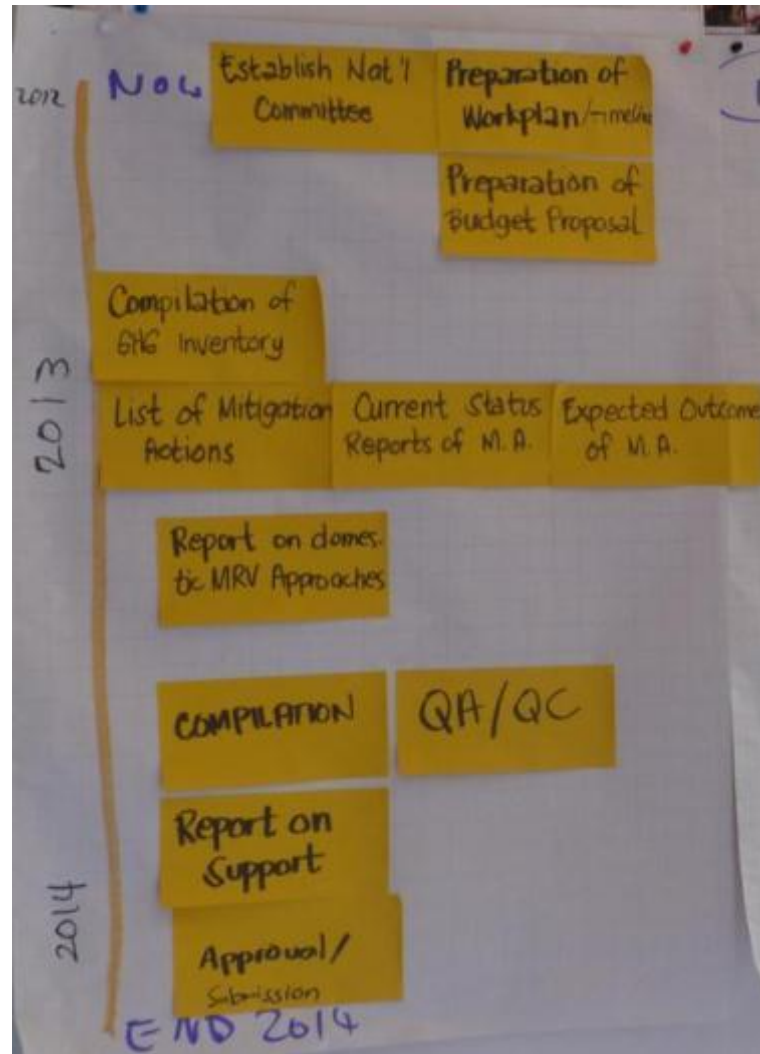 2012
NOV
Establish Nat'l
Committee
Preparation of
Workplan/Timeline
Preparation of
Budget Proposal
Compilation of
GHG Inventory
2013
List of Mitigation
Actions
Current Status
Reports of M.A.
Expected Outcome
of M.A.
Report on domes-
tic MRV Approaches
COMPILATION
QA/QC
Report on
Support
2014
Approval/
Submission
END 2014